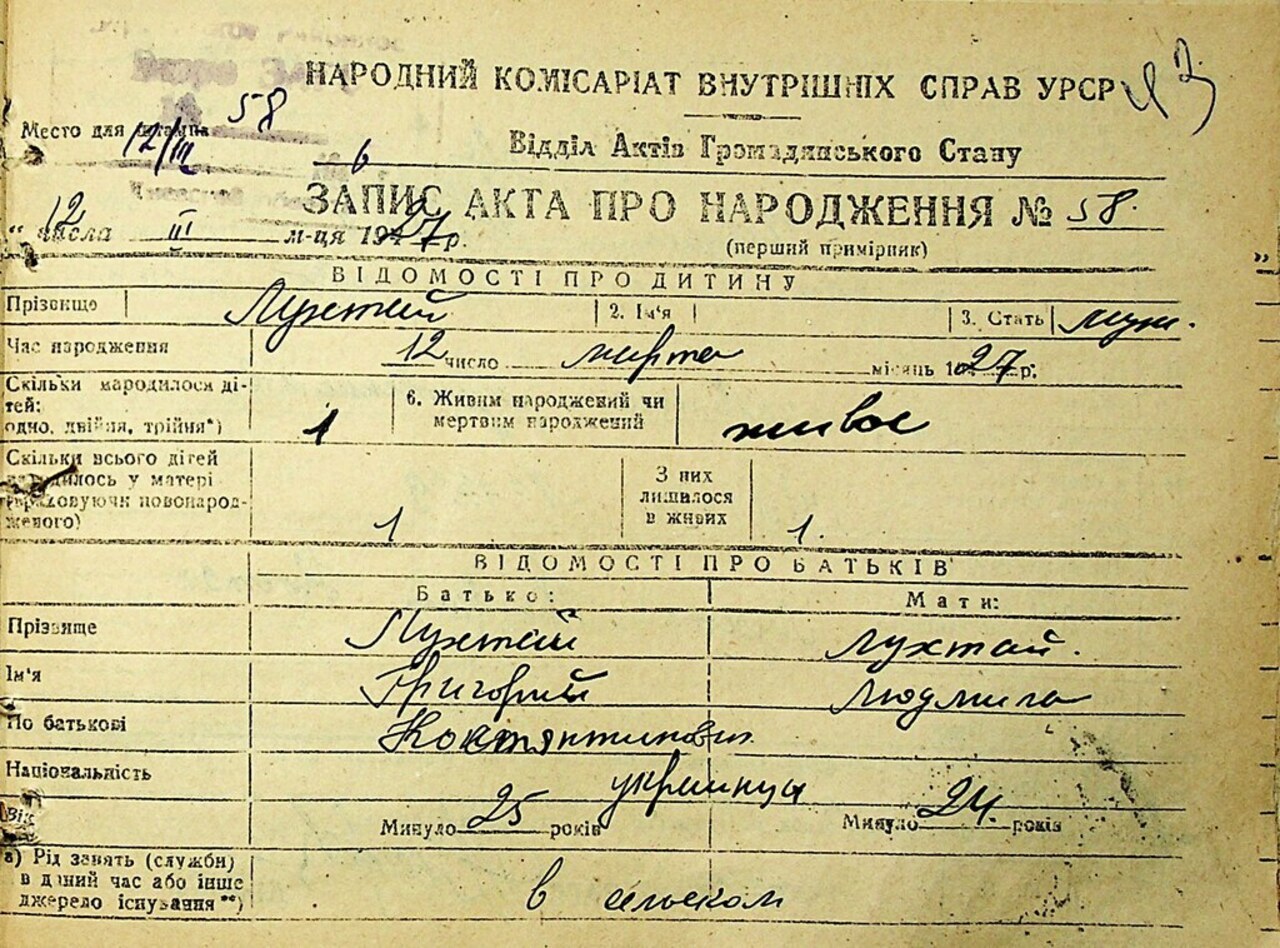 НАРОДНИЙ КОМІСАРІАТ ВНУТРІШНІХ СПРАВ УРСР
Бюро
58
Место для штампа
12/III
6
Відділ Актів Громадянського Стану
ЗАПИС АКТА ПРО НАРОДЖЕННЯ № 58.
„ 12 числа III м-ця 1927 р.
(перший примірник)
ВІДОМОСТІ ПРО ДИТИНУ
Прізвище Лухтай 2. Ім'я 3. Стать муж.
Час народження 12 число марта місяць 1927 р.
Скільки народилося ді-
тей:
одно, двійня, трійня*) 1
6. Живим народжений чи
мертвим народжений живое
Скільки всього дітей
народилось у матері
(враховуючи новонарод-
женого) 1
З них
лишилося
в живих 1.
ВІДОМОСТІ ПРО БАТЬКІВ
Батько: Мати:
Прізвище Лухтай Лухтай.
Ім'я Григорий Людмила
По батькові Костянтинович
Національність украинцы
Вік Минуло 25 років Минуло 24. років
а) Рід занять (служби)
в даний час або інше
джерело існування **) в сельском